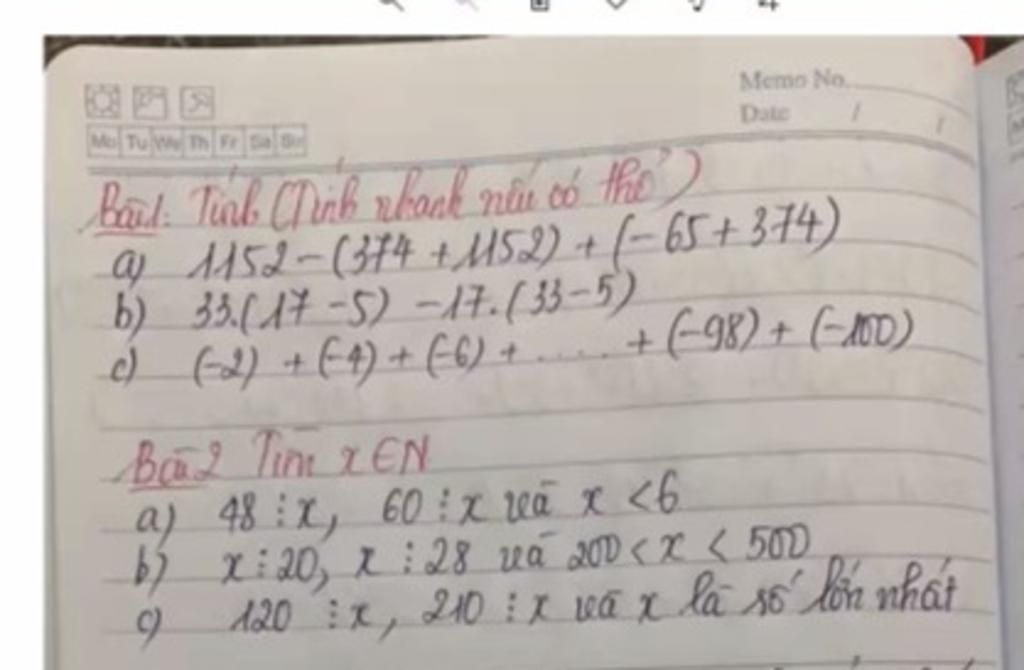 Memo No.
Date / /
Mo Tu We Th Fr Sa Su
Bài 1: Tính (Tính nhanh nếu có thể)
a) 1152 - (374 + 1152) + (-65 + 374)
b) 33.(17 - 5) - 17.(33 - 5)
c) (-2) + (-4) + (-6) + ..... + (-98) + (-100)
Bài 2 Tìm x ∈ N
a) 48 ⋮ x, 60 ⋮ x và x < 6
b) x ⋮ 20, x ⋮ 28 và 200 < x < 500
c) 120 ⋮ x, 210 ⋮ x và x là số lớn nhất